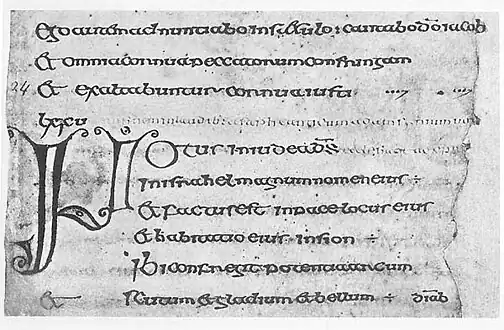 Ego autem adnuntiabo in sęculo : cantabo dō iacob
Et omnia cornua peccatorum confringam
24 Et exaltabuntur cornua iusti
lxxu
Notus in iudea d̄s
in israhel magnum nomen eius ÷
Et factus est in pace locus eius
Et habitatio eius in sion ÷
Ibi confregit
Et scutum et gladium et bellum ÷ diab